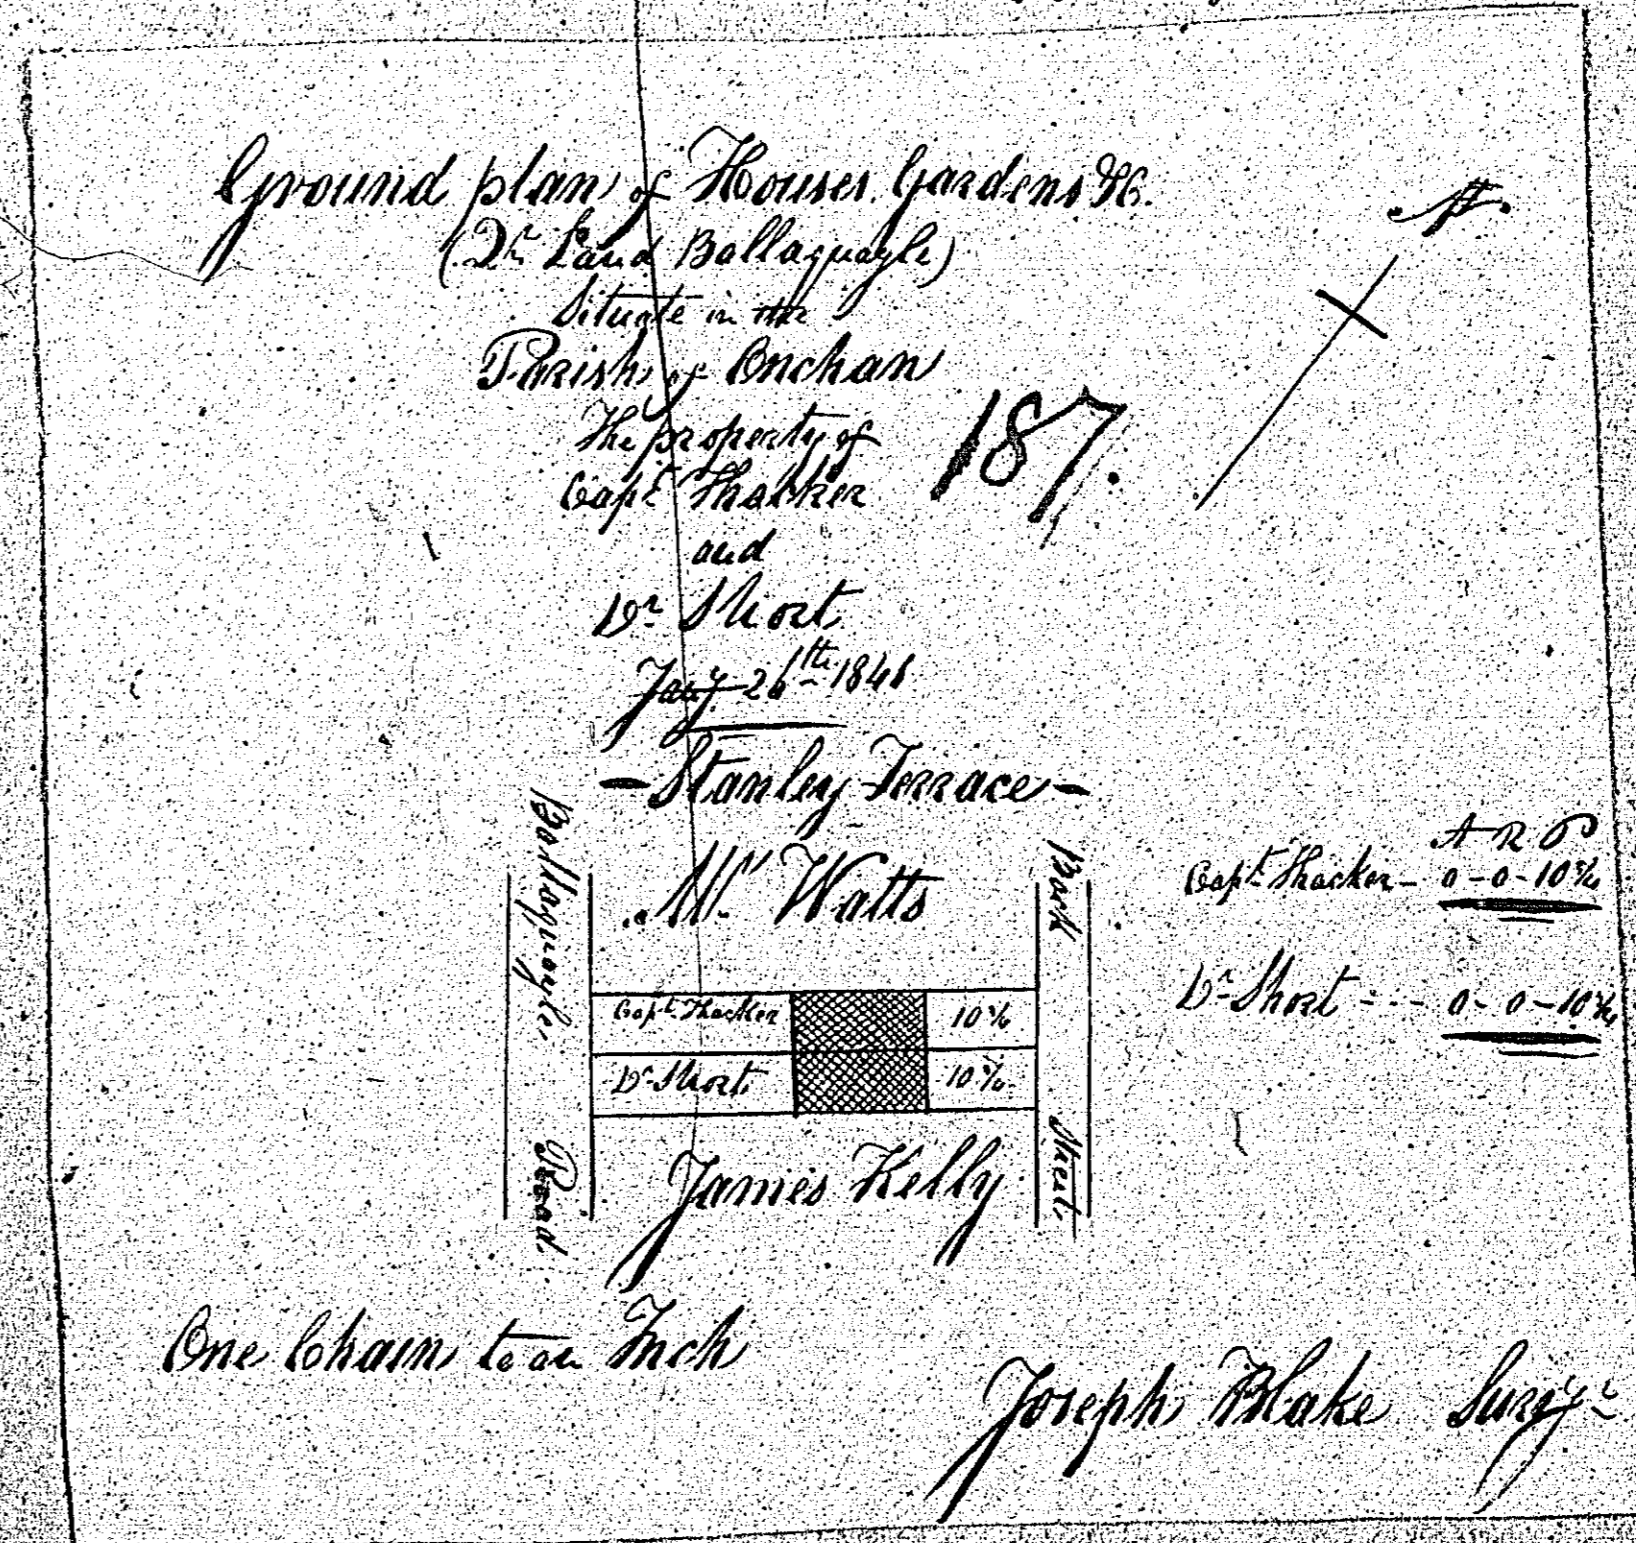 Ground plan of Houses. Gardens &c.
(Qr. Land Ballaquayle)
Situate in the
Parish of Onchan
The property of
Capt. Thacker
and
Dr. Short
Jany 26th 184
187.
N
- Stanley Terrace -
Ballaquayle Road
Mr. Watts
Park Street
Capt. Thacker 10
Dr. Short 10
James Kelly
A R P
Capt. Thacker - 0 - 0 - 10
Dr. Short - - - 0 - 0 - 10
One Chain to an Inch
Joseph Blake Survyr